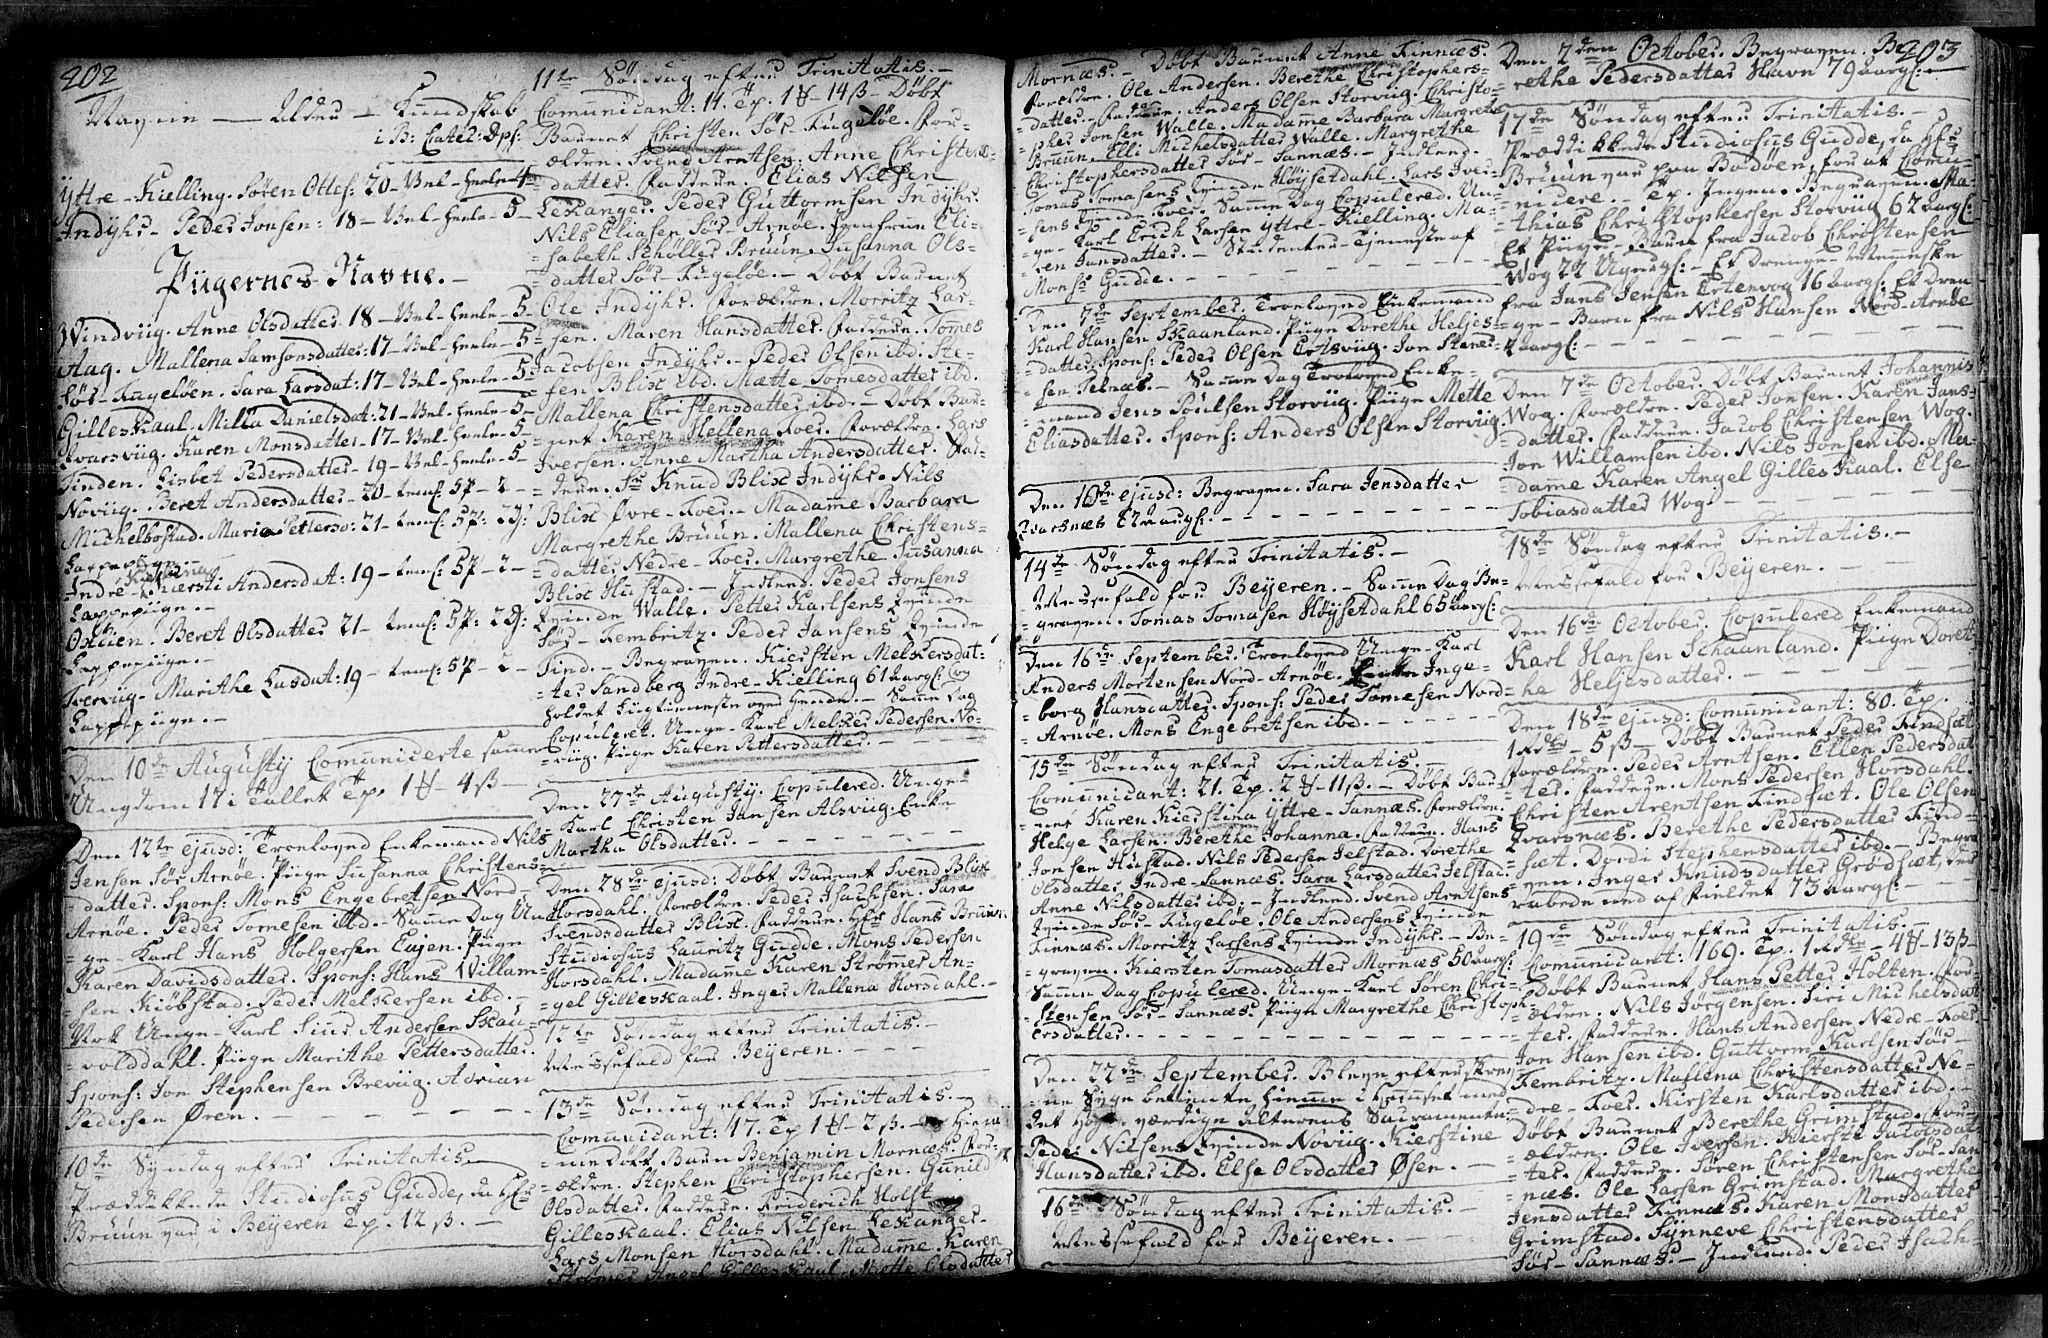 202
Navne — Alder — Kundskab
i B: Catec: Dps:
Yttre-Kielling. Søren Ottes: 20 – Vel-heele-4
Indÿhr – Peder Jonsen: 18 – Vel-heele-5–
Piigernes Navne. –
Windviig. Anne Olsdatter 18 – Vel-heele-5
Aag. Mallena Samsonsdatter: 17 – Vel-heele-5
Sør-Fugeløen. Sara Larsdat: 17 – Vel-heele-5
Gilleskaal. Milla Danielsdat: 21 – Vel-heele-5–
Qvarsviig. Karen Monsdatter 17 – Vel-heele-5
Finden. Lisbet Pedersdatter – 19 – Vel-heele-5–
Noviig. Beret Andersdatter – 20 – temf: 5p – 2 –
Michelbostad. Maria Petterso: 21 – temf: 5p: 2D:
Lappepiige
Indre-Kielling Kiersti Andersdat: 19 – temf: 5p – 2 –
Lappepiige. –
Oslien. Beret Olsdatter 21 – temf: 5p: 2D:
Lappepiige. –
Tverviig. Marithe Lasdat: 19 – temf: 5p – 2 –
Lappepiige. –
Den 10de Augusty Comunicerte samme
Ungdom 17 i Tallet Tp. 1 ₰ – 4 ß –
Den 12te ejusd: Trolovet Enkemand Nils
Jensen Sør Arnøe. Piige Susanna Christens-
datter. Spons: Mons Engebretsen Nord-
Arnøe. Peder Tomesen ibd. – Samme Dag Un-
ge-Karl Hans Holgersen Eujen. Piige
Karen Davidsdatter. Spons: Hans Willum-
sen Kiøbstad. Peder Melkersen ibd. –
Nok Unge-Karl Siur Andersen Skau-
volddahl. Piige Marithe Pettersdatter.
Spons: Jon Stephensen Breviig. Adrian
Pedersen Øren. –
10de Syndag efter Trinitatis.
Præddikede Studiosus Gudde, da Hr
Bruun var i Beÿeren Tp. 12 ß. –
11te Søndag efter Trinitatis. –
Comunicant: 11. Tp. 1 ₰ – 14 ß – Døbt
Barnet Christen Sør Fugeløe. For-
ældre. Svend Arntsen. Anne Christens-
datter. Faddere. Elias Nilsen
Lekanger. Peder Guttormsen Indÿhr.
Nils Eliasen Sør-Arnøe. Jomfrue Eli-
sabeth Schøller Bruun. Susanna Ols-
datter Sør Fugeløe. – Døbt Barnet
Ole Indÿhr. Forældre. Morritz Lar-
sen. Maren Hansdatter. Faddere. Tomes
Jacobsen Indÿhr. – Peder Olsen ibd. Ste-
fen Blix ibd. Mætte Tomesdatter ibd.
Mallena Christensdatter ibd. – Døbt Bar-
net Karen Hellena Roes. Forældre. Lars
Iversen. Anne Martha Andersdatter. Fad-
dere. Sr Knud Blix Indÿhr. Nils
Blix Øvre-Roes. – Madame Barbara
Margrethe Bruun. Mallena Christens-
datter Nedre-Roes. Margrethe Susanna
Blix Hustad. – Indleed. Peder Jonsens
Qvinde Walle. Petter Karlsens Qvinde
Sør-Fembritz. Peder Jansens Qvinde
Find. – Begraven. Kiersten Melkersdat-
ter Sandberg Indre-Kielling 61 aargl:
holdet Liigtieneste over hende. – Samme Dag
Copuleret. Unge-Karl Melker Pedersen No-
viig. Piige Karen Pettersdatter. –
Den 27de Augusty. Copulered. Unge-
Karl Christen Jansen Alsviig. Enke
Martha Olsdatter. –
Den 28de ejusd: Døbt Barnet Svend Blix
Horsdahl. Forældre. Peder Isachsen. Sara
Svendsdatter Blix. Faddere. Hr Hans Bruun.
Studiosus Lauritz Gudde. Mons Pedersen
Horsdahl. Madame Karen Strømer An-
gel Gilleskaal. Inger Mallena Horsdahl. –
12te Søndag efter Trinitatis. –
Messefald for Beÿeren. –
13de Søndag efter Trinitatis. –
Comunicant: 17. Tp 1 ₰ – 2 ß. – hiem-
me Døbt Barn Benjamin Mornæs. For-
ældre. Stephen Christophersen. Gunild
Olsdatter. Faddere. Friderich Holst
Gilleskaal. Elias Nilsen Lekanger.
Lars Monsen Horsdahl. Madame Karen
Strømer Angel Gilleskaal. Mætte Olsdatter
203
Mornæs. – Døbt Barnet Anne Finnæs.
Forældre. Ole Andersen. Berethe Christophers-
datter. Faddere. Anders Olsen Storviig. Christo-
pher Jonsen Walle. Madame Barbara Margrethe
Bruun. Elli Michelsdatter Walle. Margrethe
Christophersdatter Sør-Sannæs. – Indleed.
Tomas Tomasens Qvinde Høÿsetdahl. Lars Iver-
sens Qvinde Roes. Samme Dag Copulered. Un-
ge-Karl Erich Larsen Yttre-Kielling. Ma-
ren Jansdatter. – Studenter Tjeneste af
Monsr Gudde. –
Den 7de September. Trolovet Enkemand
Karl Hansen Skaanland. Piige Dorethe Heljes-
datter. Spons: Peder Olsen Ertsviig. Jon Stener-
sen Selnæs. – Samme Dag Trolovet Enke-
mand Jens Poulsen Storviig. Piige Mette
Eliasdatter. Spons: Anders Olsen Storviig.
Den 10de ejusd: Begraven. Sara Jensdatter
Qvarsnæs 12 aargl:. –
14de Søndag efter Trinitatis. –
Messefald for Beÿeren. – Samme Dag Be-
graven. Tomas Tomasen Høÿsetdahl 65 aargl:
Den 16de September. Trolovet Unge-Karl
Anders Mortensen Nord-Arnøe. Inge-
borg Hansdatter. Spons: Peder Tomesen Nord-
Arnøe. Mons Engebretsen ibd. –
15de Søndag efter Trinitatis. –
Comunicant: 21. Tp. 2 ₰ – 11 ß – Døbt Bar-
net Karen Kierstina Yttre-Sannæs. Forældre.
Helge Larsen. Berethe Johanna. Faddere. Hans
Jonsen Hustad. Nils Pedersen Selstad. Dorethe
Olsdatter Indre-Sannæs. Sara Larsdatter Selstad.
Anne Nilsdatter ibd. – Indleed. Svend Arntsens
Qvinde Sør-Fugeløe. Ole Andersens Qvinde
Finnæs. Morritz Larsens Qvinde Indÿhr. – Be-
graven. Kiersten Tomasdatter Mornæs 50 aargl:
Samme Dag Copulered. Unge-Karl Søren Chri-
stensen Sør-Sannæs. Piige Margrethe Christoph-
ersdatter. –
Den 22de September. Bleve efterskrev-
ne Syge betiente hiemme i Huuset med
det høy-værdige Alterens Sacramente
Peder Nilsens Qvinde Noviig. Kierstine
Hansdatter ibd. Else Olsdatter Øsen. –
16de Søndag efter Trinitatis. –
Messefald for Beÿeren. –
Den 2den October. Begraven. Be-
rethe Pedersdatter Havn 79 aargl:
17de Søndag efter Trinitatis. –
Præddikede Studiosus Gudde, da Hr
Bruun var paa Bodøen, for at Comu-
nicere. – Tp. Ingen. Begraven. Ma-
thias Christophersen Storviig 62 aargl:
Et Piige-Barn fra Jacob Christensen
Wog 22 Ugergl: – Et Drenge-Menniske
fra Jans Jensen Ertenvog 16 aargl: Et Dren-
ge-Barn fra Nils Hansen Nord-Arnøe
4 aargl: –
Den 7de October. Døbt Barnet Johannis
Wog. Forældre. Peder Jonsen. Karen Jans-
datter. Faddere. Jacob Christensen Wog.
Jon Willumsen ibd. Nils Jonsen ibd. Ma-
dame Karen Angel Gilleskaal. Else
Tobiasdatter Wog. –
18de Søndag efter Trinitatis. –
Messefald for Beÿeren. –
Den 16de October. Copulered Enkemand
Karl Hansen Schaanland. Piige Doret-
he Heljesdatter. –
Den 18de ejusd: Comunicant: 80. Tp.
1 Rdlr – 5 ß – Døbt Barnet Peder Findsæt.
Forældre. Peder Arntsen. Ellen Pedersdat-
ter. Faddere. Mons Pedersen Horsdahl.
Christen Arentsen Findsæt. Ole Olsen
Qvarsnæs. Berethe Pedersdatter Find-
sæt. Dordi Stephensdatter ibd. – Begra-
ven. Inger Knudsdatter Grødsæt, der
rabede ned af Fieldet 73 aargl: –
19de Søndag efter Trinitatis. –
Comunicant: 169. Tp. 1 Rdlr – 4 ₰ – 13 ß –
Døbt Barnet Hans Petter Holten. For-
ældre. Nils Jørgensen. Siri Michelsdat-
ter. Faddere. Hans Andersen Nedre-Roes.
Jon Hansen ibd. Guttorm Karlsen Sør-
Fembritz. Mallena Christensdatter Ne-
dre-Roes. Kirsten Karlsdatter ibd. –
Døbt Barnet Berethe Grimstad. For-
ældre. Ole Iversen. Kiersti Jacobsdat-
ter. Faddere. Søren Christensen Sør-San-
næs. Ole Larsen Grimstad. Margrethe
Jensdatter Finnæs. Karen Monsdatter
Grimstad. Synneve Christensdatter
Sør-Sannæs. – Indleed. Peder Isach-